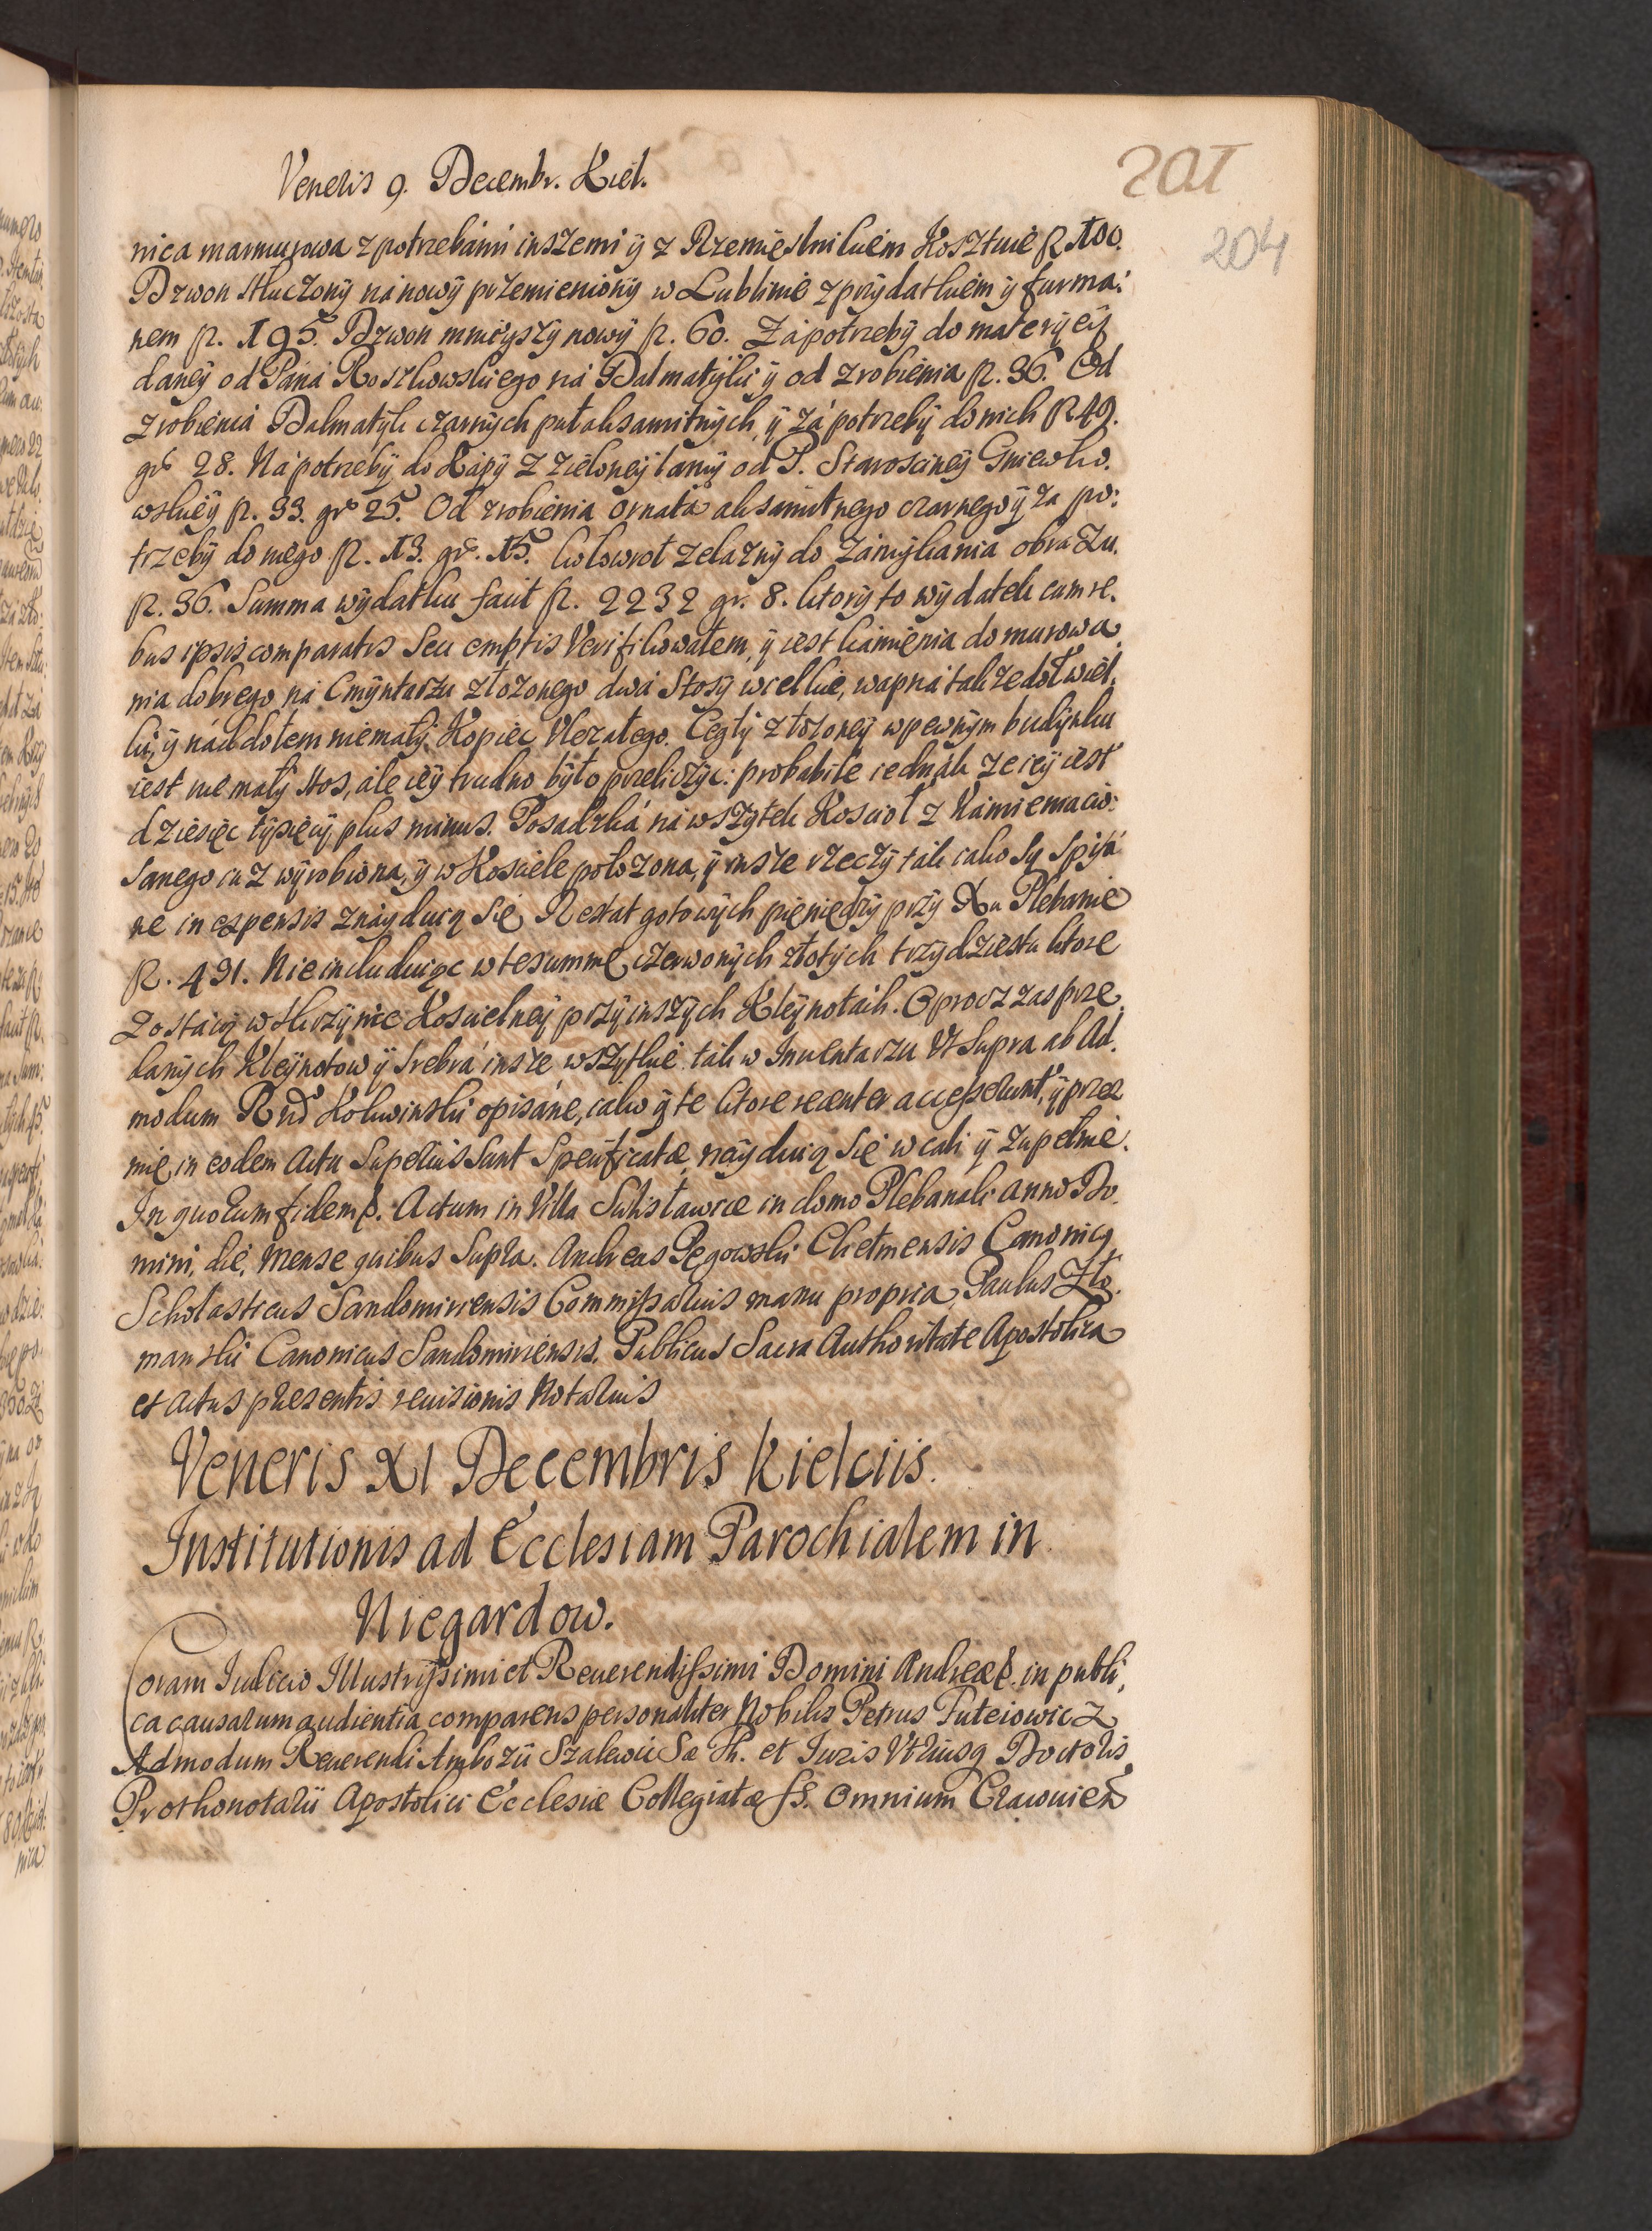 Veneris 9. Decembr. Kiel.
201
204
nica marmurowa z potrzebámi inszemi ÿ z Rzemięslnikiem Kosztuie fl. 100.
Dzwon stłuczonÿ nánowÿ przemienionÿ w Lublinie z przÿdatkiem ÿ furma:
nem fl. 195. Dzwon mnieÿszÿ nowÿ fl. 60. Zá potrzebÿ do materÿeÿ
daneÿ od Páná Roszkowskiego ná Dalmatÿki ÿ od zrobienia fl. 36. Od
zrobieniá Dalmatÿk czarnÿch puł aksamitnÿch, ÿ zá potrzebÿ do nich fl 49.
gr 28. Ná potrzebÿ do Kápÿ z zieloneÿ lamÿ od P. Staroscineÿ Gniewko.
wskieÿ fl. 33. gr 25. Od zrobienia ornata aksamitnego czarnego ÿ za po:
trzebÿ do niego fl. 13. gr. 15. kołowrot zelaznÿ do zámÿkania obrazu.
fl. 36. Summa wÿdatku facit fl. 2232 gr. 8. ktorÿ to wÿdatek cum re.
bus ipsis comparatis seu emptis Verifikowałem, ÿ iest kámienia do murowa
nia dobrego ná Cmÿntarzu złozonego dwá stosÿ wielkie, wapná takze doł wiel.
ki, ÿ nád dołem niemałÿ Kopiec Vlezałego. Cegłÿ złozoneÿ w pewnÿm budÿnku
iest nie małÿ stos, ále ieÿ trudno bÿło przeliczÿc: probabile iednák ze ieÿ iest
dziesięc tÿsięcÿ plus minus. Posadzká ná wszÿtek Koscioł z Kámienia cio:
sanego iuz wÿrobiona, ÿ w Kosciele położona, ÿ insze rzeczÿ ták iako są spisá
ne in expensis znáÿduią się. Restat gotowÿch pięniędzÿ przÿ Xu Plebanie
fl. 491. Nie includuiąc w te summę czerwonÿch złotÿch trzÿdziestu ktore
zostaią w skrzÿnce Koscielneÿ przÿ inszÿch Kleÿnotach. Oprocz zas prze
danÿch Kleÿnotow ÿ srebrá insze wszÿtkie ták w Inuentarzu Vt supra ab Ad.
modum Rnd Kolwinski opisáne, iako ÿ te ktore recenter accesserunt, ÿ przez
mię in eodem Actu superius sunt specificatæ, náÿduią się w cali ÿ zupełnie.
In quorum fidem &. Actum in Villa Sulisławice in domo Plebanali Anno Do.
mini, die, mense quibus supra. Andreas Pęgowski Chełmensis Canonicq
Scholasticus Sandomiriensis Commissarius manu propria, Paulus Zło.
manski Canonicus Sandomiriensis. Publicus Sacra Authoritate Apostolica
et Actus præsentis reuisionis Notarius
Veneris XI Decembris Kielciis.
Institutionis ad Ecclesiam Parochialem in
Niegardow.
Coram Iudicio Illustrissimi et Reuerendissimi Domini Andreæ &. in publi.
ca causarum audientia comparens personaliter Nobilis Petrus Puteiowicz
Admodum Reuerendi Ambrozii Szalewic Sæ Th. et Iuris Vtriusq Doctoris
Prothonotarii Apostolici Ecclesiæ Collegiatæ SS. Omnium Cracouień